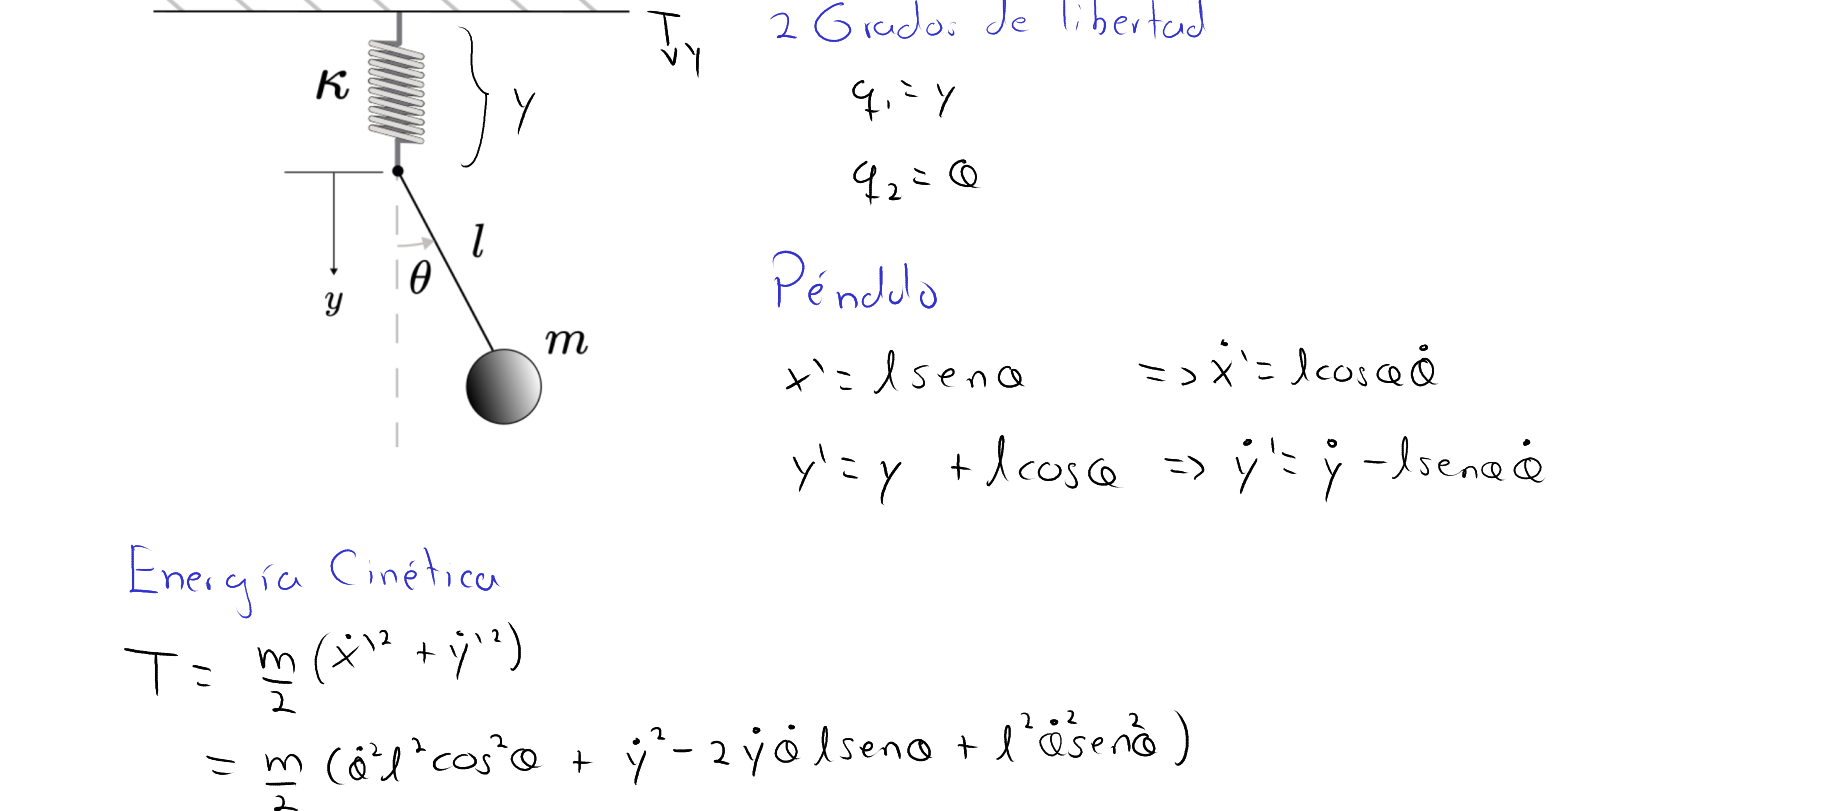 2 Grados de libertad
↓y
κ
} y
q₁ = y
q₂ = θ
l
θ
y
m
Péndulo
x' = l senθ => ẋ' = l cosθ θ̇
y' = y + l cosθ => ẏ' = ẏ - l senθ θ̇
Energía Cinética
T = m/2 (ẋ'² + ẏ'²)
= m/2 (θ̇² l² cos²θ + ẏ² - 2 ẏ θ̇ l senθ + l² θ̇² sen²θ)